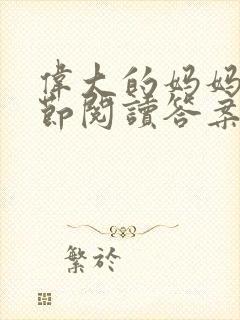 偉大的妈妈
節閱讀答案
繁於